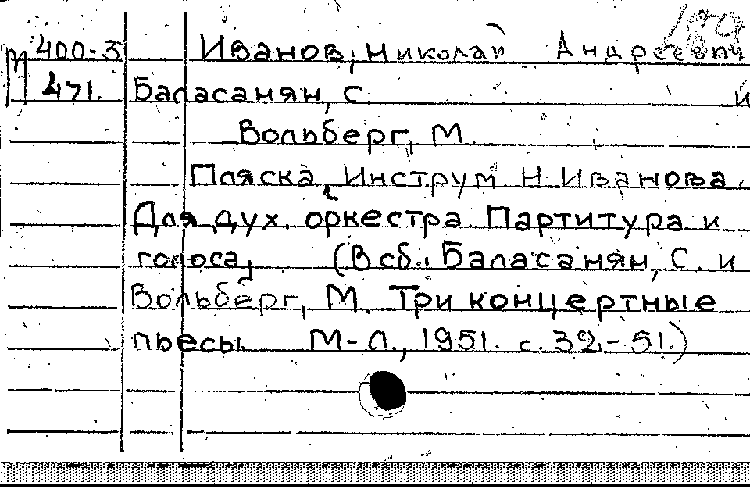 189
М 400-3 Иванов, Николай Андреевич
471. Баласанян, С. и
Вольберг, М.
Пляска. Инструм. Н. Иванова.
Для дух. оркестра Партитура и
голоса, (В сб.: Баласанян, С. и
Вольберг, М. Три концертные
пьесы. М-Л., 1951. с. 32-51.)